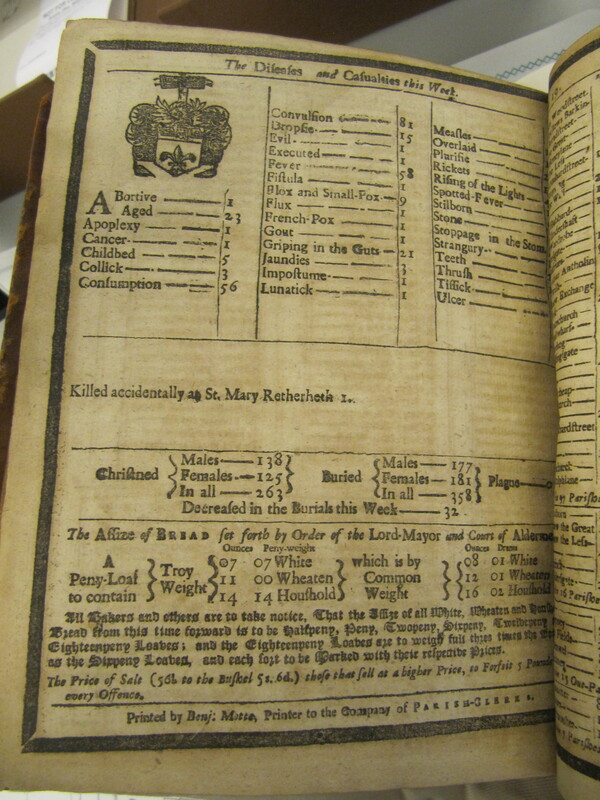 The Diseases and Casualties this Week.
ABortive 1
Aged 23
Apoplexy 1
Cancer 1
Childbed 5
Collick 3
Consumption 56
Convulsion 81
Dropsie 15
Evil 1
Executed 1
Fever 58
Fistula 1
Flox and Small-Pox 9
Flux 1
French-Pox 1
Gout 1
Griping in the Guts 21
Jaundies 3
Impostume 1
Lunatick 1
Measles
Overlaid
Plurisie
Rickets
Rising of the Lights
Spotted-Fever
Stilborn
Stone
Stoppage in the Stom
Strangury
Teeth
Thrush
Tissick
Ulcer
Killed accidentally at St. Mary Retherheth 1.
Christned
Males 138
Females 125
In all 263
Buried
Males 177
Females 181
In all 358
Plague
Decreased in the Burials this Week 32
The Assize of BREAD set forth by Order of the Lord-Mayor and Court of Alderm
A
Peny-Loaf
to contain
Troy
Weight
Ounces Peny-weight
07 07 White
11 00 Wheaten
14 14 Houshold
which is by
Common
Weight
Ounces Drams
08 01 White
12 01 Wheaten
16 02 Houshold
All Bakers and others are to take notice, That the Assize of all White, Wheaten and
Bread from this time forward is to be Halfpeny, Peny, Twopeny, Sixpeny, Twelvepeny
Eighteenpeny Loaves; and the Eighteenpeny Loaves are to weigh full three times the
as the Sixpeny Loaves, and each sort to be Marked with their respective Prices.
The Price of Salt (56l. to the Bushel 5s. 6d.) those that sell at a higher Price, to Forfeit 5 Pound
every Offence.
Printed by Benj. Motte, Printer to the Company of PARISH-CLERKS.